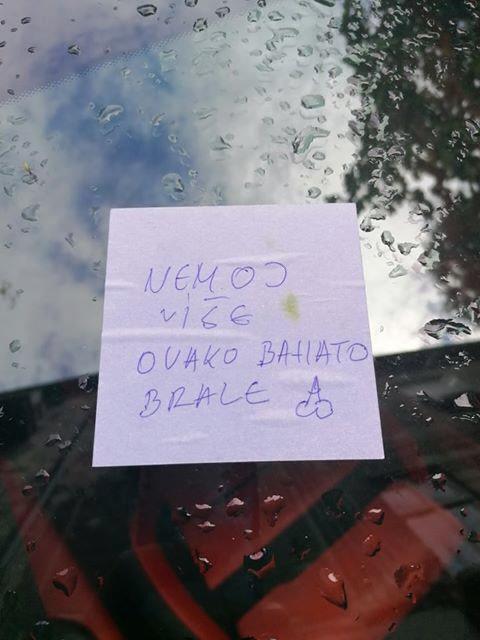 NEMOJ
VIŠE
OVAKO BAHATO
BRALE